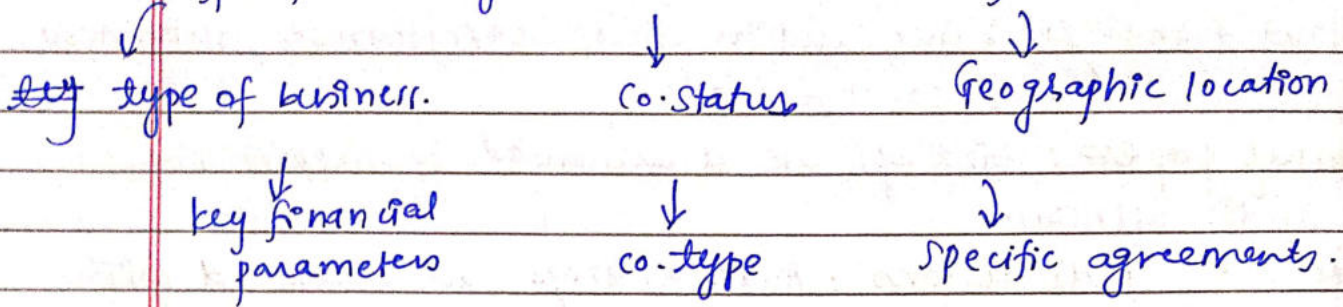 type of business. Co. Status Geographic location
key financial
parameters co. type specific agreements.